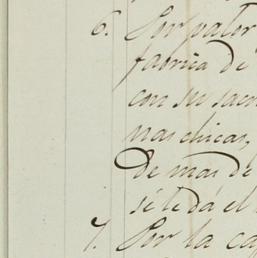 6. Por pator
fabrica de
con su sacr
mas chicas,
De mas de
se le dá el
7. Por la ca